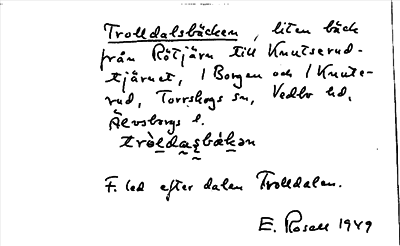 Trolldalsbäcken, liten bäck
från Rötjärn till Knutserud-
tjärnet, 1 Borgen och 1 Knuts-
rud, Torrskogs sn, Vedbo hd,
Älvsborgs l.
tròldasbǽkən
F. led efter dalen Trolldalen.
E. Rosell 1949